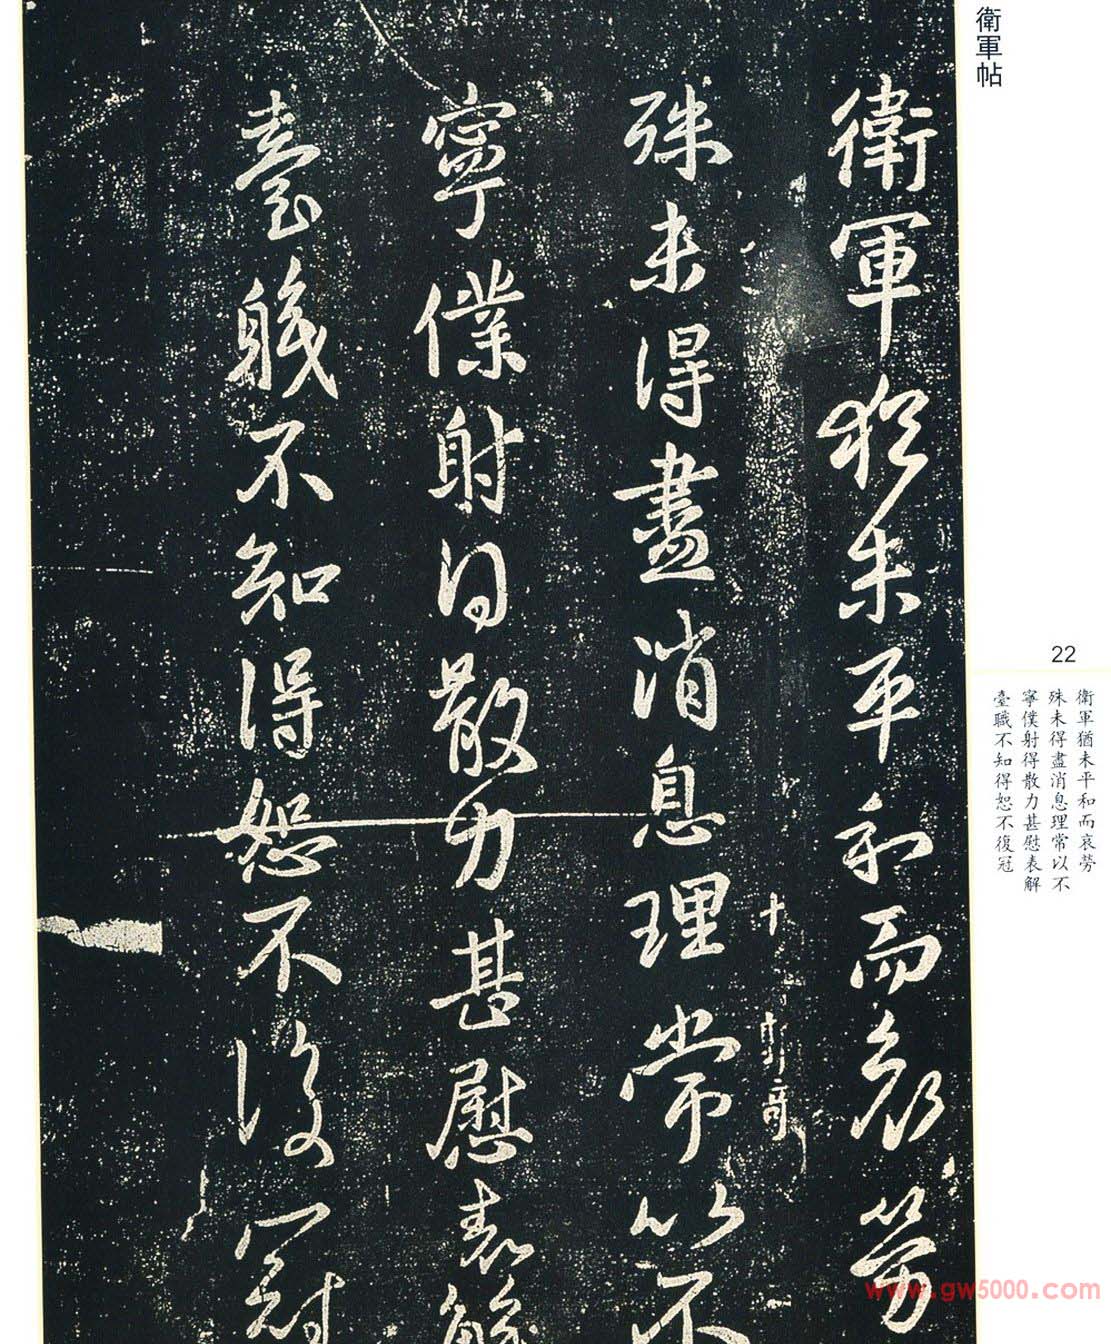 衛軍帖
衛軍猶未平和而哀勞
殊未得盡消息理常以不
寧僕射得散力甚慰表解
臺職不知得恕不復冠
十
22
衛軍猶未平和而哀勞
殊未得盡消息理常以不
寧僕射得散力甚慰表解
臺職不知得恕不復冠
www.gw5000.com